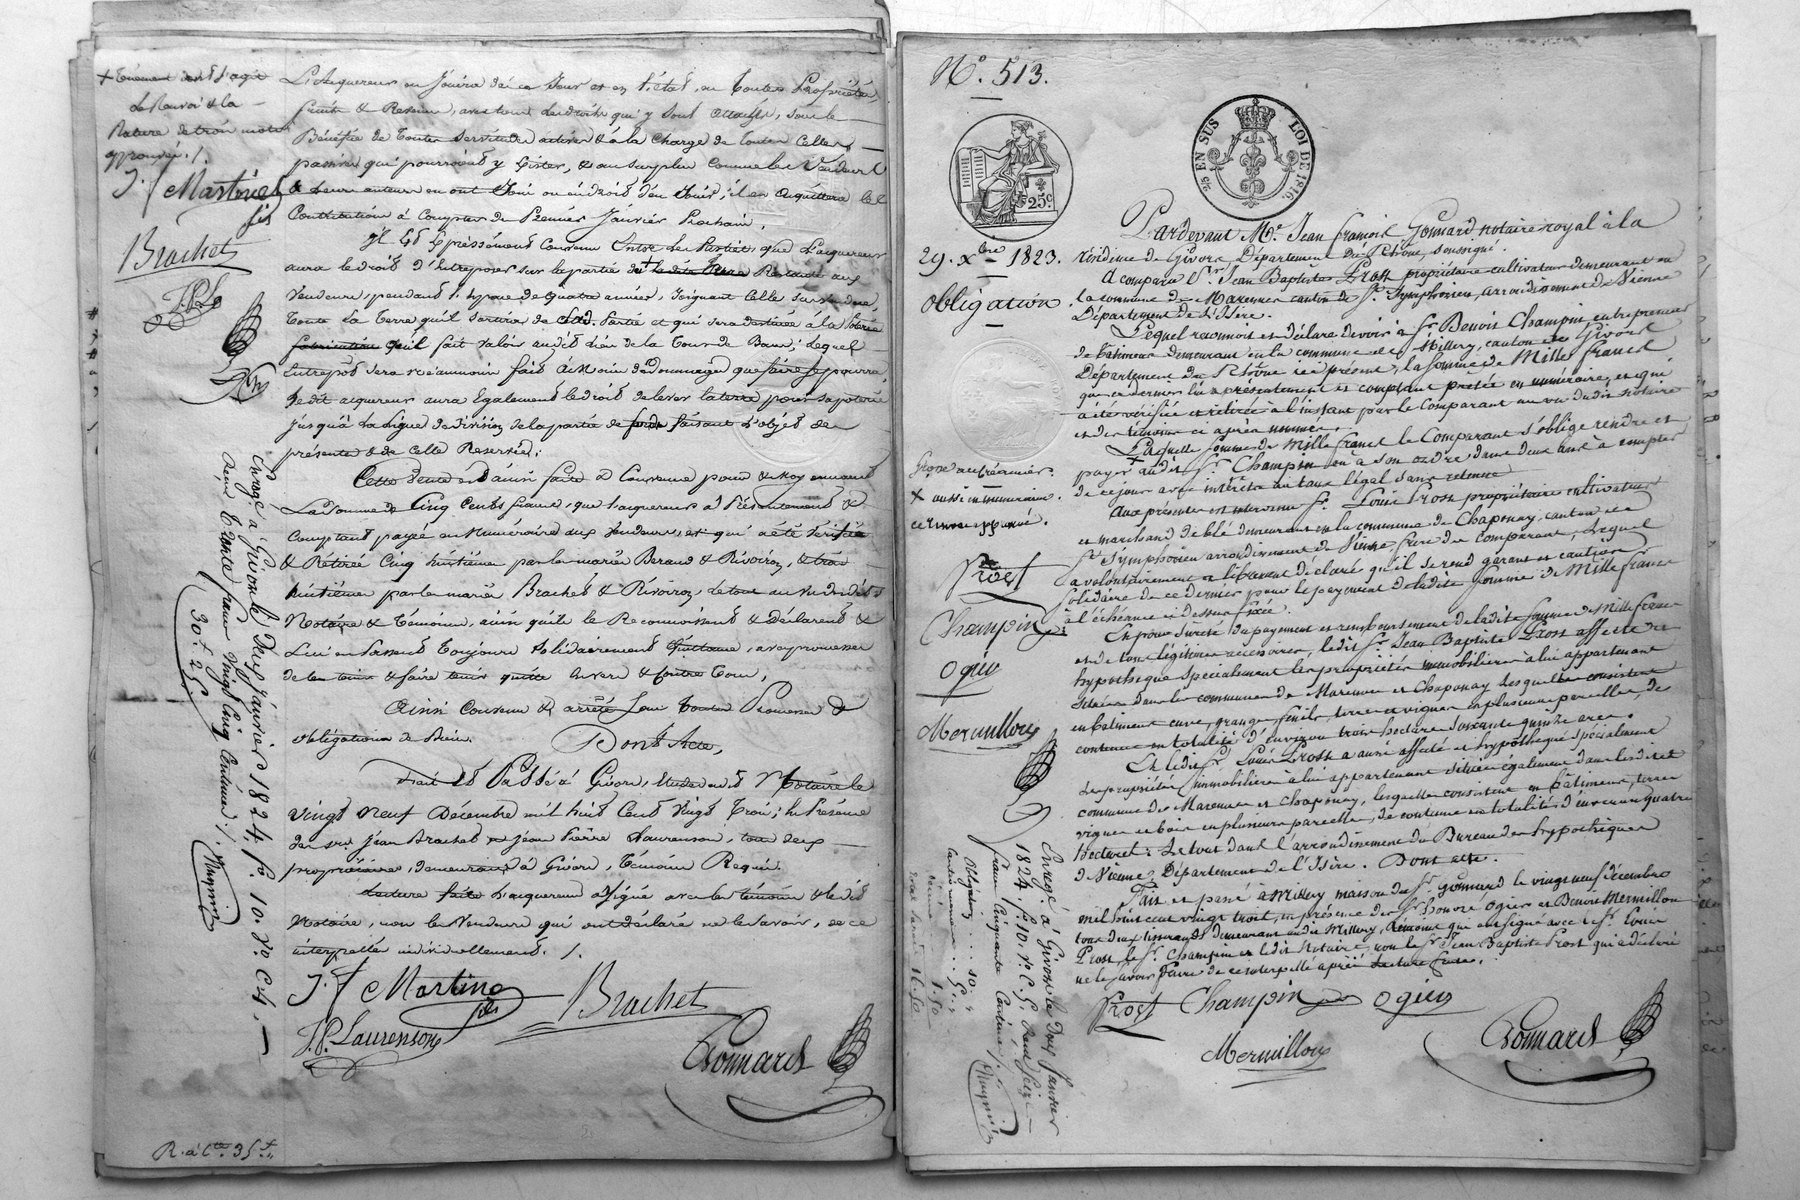 L'acquereur en Jouira dès ce Jour et en l'état, en toutes Propriétés,
fruits & Revenus, avec tous les droits qui y sont attachés, sous le
Bénéfice de toutes servitudes actives & à la charge de toutes celles
passives qui pourroient y Exister, & au surplus comme les Vendeurs
& leurs auteurs en ont Joui ou eu droit d'en Jouir; il en acquittera les
Contributions à Compter du Premier Janvier Prochain.
Il Est Expressément Convenu Entre les Parties que l'acquereur
aura le droit d'Entreposer sur la partie de la dite Terre Restante aux
Vendeurs, pendant l'espace de quatre années,
toute la Terre qu'il sortira de lad. Partie et qui sera destinée à la Poterie
qu'il fait valoir audit lieu de la Tour de Bans; lequel
Entrepôt sera néanmoins fait au moins de dommages que faire se pourra,
ledit acquereur aura Également le droit de lever la terre pour sa poterie
jusqu'à la ligne de division de la partie de fonds faisant l'objet des
présentes & de celle Reservée.
Cette Vente est ainsi faite & Convenue pour & moyennant
La Somme de Cinq Cents francs, que l'acquereur a Présentement &
Comptant payée en Numéraire aux Vendeurs, et qui a été Vérifiée
& Retirée Cinq huitièmes par les mariés Beraud & Rivoiron, & trois
huitièmes par les mariés Brachet & Rivoiron, le tout au vu desdits
Notaire & Témoins, ainsi qu'ils le Reconnoissent & Déclarent &
Lui en Passent Toujours Solidairement Quittance, avec promesse
de l'en tenir & faire tenir quitte Envers & Contre Tous.
Ainsi Convenu & arrêté sous Toutes Promesses &
obligations de Biens. Dont Acte,
Fait Et Passé à Givors, Etude dudit Notaire le
Vingt Neuf Décembre mil huit Cent Vingt Trois; En Présence
des srs Jean Brachet & Jean Pierre Laurenson, tous deux
propriétaires, demeurant à Givors, Témoins Requis.
Lecture faite L'acquereur a signé avec les témoins & ledit
Notaire, non les Vendeurs qui ont déclaré ne le savoir, de ce
interpellés individuellement. /.
J. f Martine fils
Brachet
J.P. Laurenson
Gonnard
+ Tènement dont s'agit
Le Renvoi & la
Rature de trois mots
approuvés. /.
J. f Martine fils
Brachet
J.P.L.
Enregé à Givors le Deux Janvier 1824, fo. 10. Vo. C.4,
Reçu Trente francs Vingt Cinq Centimes /.
30f 25c
R. à Cte 35f
No. 513.
25c
25 EN SUS
LOI DE 1816.
29. Xbre 1823.
Obligation
Pardevant Me. Jean François Gonnard notaire royal à la
résidence de Givors, Département du Rhône, soussigné.
A comparu Sr. Jean Baptiste Prost propriétaire cultivateur demeurant en
la commune de Marennes canton de St. Symphorien, arrondissement de Vienne
Département de L'Isère.
Lequel reconnoit et déclare devoir à Sr. Benoit Champin entrepreneur
de bâtiments demeurant en la commune de Millery, canton de Givors
Département du Rhône ici présent, la somme de Mille francs
que ce dernier lui a présentement et comptant prêtée en numéraire, et qui
a été vérifiée et retirée à l'instant par le Comparant au vu dudit notaire
et des témoins ci après nommés.
Laquelle somme de Mille francs le Comparant s'oblige rendre et
payer audit Sr. Champin ou à son ordre dans deux ans à compter
de ce jour avec intérêts au taux légal sans retenue
Aux présentes est intervenu Sr. Louis Prost propriétaire cultivateur
et marchand de blé demeurant en la commune de Chaponay, canton de
St. Symphorien arrondissement de Vienne frère du comparant, lequel
a volontairement et librement déclaré qu'il se rend garant et caution
solidaire de ce dernier pour le payement de ladite somme de Mille francs
à l'échéance ci dessus fixée.
Et pour sureté du payement et remboursement de ladite somme de Mille francs
et de tous légitimes accessoires, ledit Sr. Jean Baptiste Prost affecte et
hypothèque spécialement les propriétés immobilières à lui appartenant
situées dans les communes de Marennes et Chaponay lesquelles consistent
en bâtiments cour, grange, fenils, terres et vignes en plusieurs parcelles, de
contenue en totalité d'environ trois hectares soixante quinze ares.
Et ledit Sr. Louis Prost a aussi affecté et hypothéqué spécialement
les propriétés immobilières à lui appartenant situées également dans lesdites
communes de Marennes et Chaponay, lesquelles consistent en bâtimens, terres
vignes et bois en plusieurs parcelles, de contenue en totalité d'environ quatre
hectares; Le tout dans l'arrondissement du Bureau des hypothèques
de Vienne, Département de l'Isère. Dont acte.
Fait et passé à Millery maison du Sr. Gonnard le vingt neuf décembre
mil huit cent vingt trois, en présence des Srs. Honoré Ogier et Benoit Mermillon
tous deux tisserands demeurant audit Millery, témoins qui ont signé avec le Sr. Louis
Prost, le Sr. Champin et ledit Notaire, non le Sr. Jean Baptiste Prost qui a déclaré
ne le savoir faire de ce interpellé après lecture faite.
Prost Champin Ogier
Mermillon
Gonnard
+ aussi en numéraire.
Prost
Champin
Ogier
Mermillon
Enregé à Givors le Deux Janvier
1824, fo. 10. Vo. C. 5,
francs Cinquante Centimes /.
Obligation . . . 10."
Cautionnement . . 5."
Décime . . . 1.50
16.50